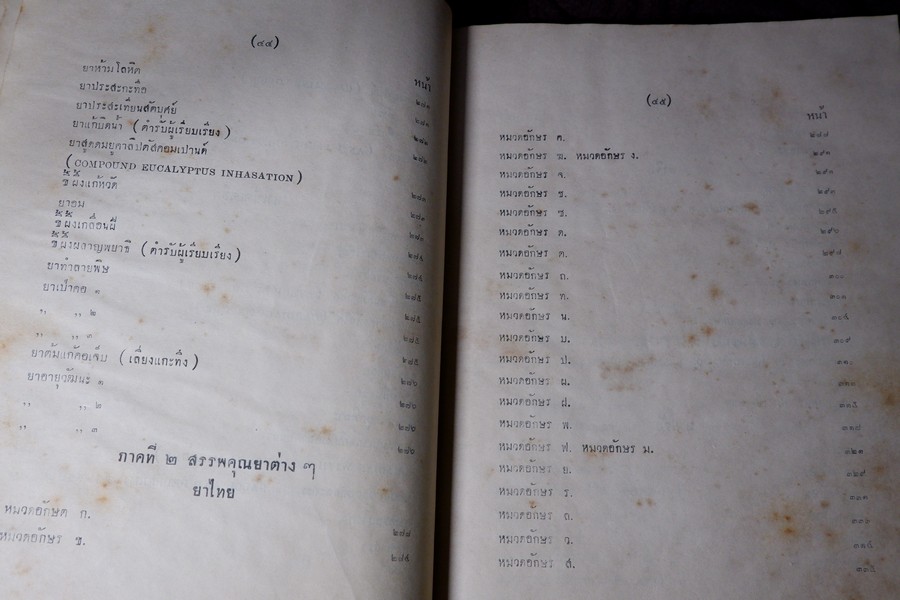 (๔๔)
หน้า
ยาห้ามโลหิต
ยาประสะกะทือ ๒๘๑
ยาประสะเทียนสัตบุศย์ ๒๘๑
ยาแก้บิดน้ำ (ตำรับผู้เรียบเรียง) ๒๘๒
ยาสูดดมยูคาลิปตัสคอมเปานด์ ๒๘๒
(COMPOUND EUCALYPTUS INHASATION)
ผงแก้หวัด ๒๘๓
ยาอม ๒๘๓
ผงเกลื่อนฝี ๒๘๓
ผงผลาญพยาธิ (ตำรับผู้เรียบเรียง) ๒๘๔
ยาทำลายพิษ ๒๘๔
ยาเป่าคอ ๑ ๒๘๕
,, ,, ๒ ๒๘๕
,, ,, ๓ ๒๘๕
ยาต้มแก้คอเจ็บ (เลี่ยงแกะทึ้ง) ๒๘๕
ยาอายุวัฒนะ ๑ ๒๘๖
,, ,, ๒ ๒๘๖
,, ,, ๓ ๒๘๖
ภาคที่ ๒ สรรพคุณยาต่าง ๆ
ยาไทย
หมวดอักษต ก. ๒๘๗
หมวดอักษร ข. ๒๘๕
(๔๕)
หน้า
หมวดอักษร ค. ๒๘๘
หมวดอักษร ฆ. หมวดอักษร ง. ๒๙๓
หมวดอักษร จ. ๒๙๓
หมวดอักษร ช. ๒๙๓
หมวดอักษร ซ. ๒๙๕
หมวดอักษร ด. ๒๙๖
หมวดอักษร ต. ๒๙๗
หมวดอักษร ถ.
หมวดอักษร ท.
หมวดอักษร น.
หมวดอักษร บ. ๓๐๙
หมวดอักษร ป.
หมวดอักษร ผ.
หมวดอักษร ฝ.
หมวดอักษร พ.
หมวดอักษร ฟ. หมวดอักษร ม.
หมวดอักษร ย. ๓๒๙
หมวดอักษร ร.
หมวดอักษร ล.
หมวดอักษร ว.
หมวดอักษร ส.